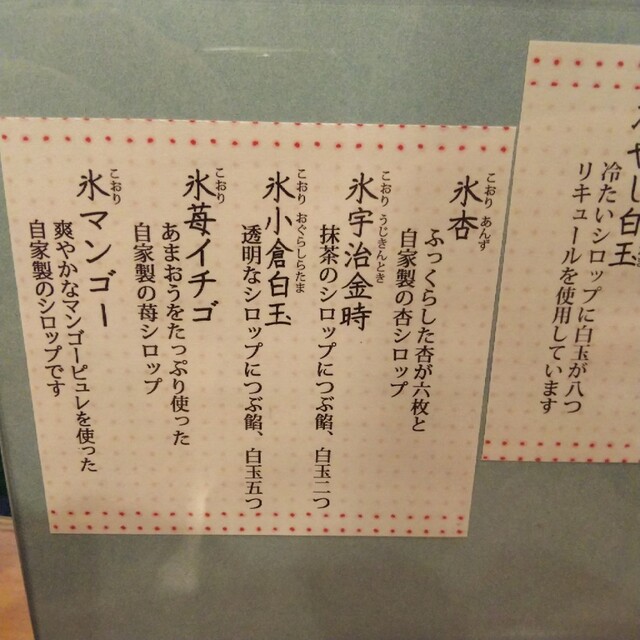 やし白玉
冷たいシロップに白玉が八つ
リキュールを使用しています
氷杏
こおり あんず
ふっくらした杏が六枚と
自家製の杏シロップ
氷宇治金時
こおり うじきんとき
抹茶のシロップにつぶ餡、白玉二つ
氷小倉白玉
こおり おぐらしらたま
透明なシロップにつぶ餡、白玉五つ
氷苺イチゴ
こおり
あまおうをたっぷり使った
自家製の苺シロップ
氷マンゴー
こおり
爽やかなマンゴーピュレを使った
自家製のシロップです